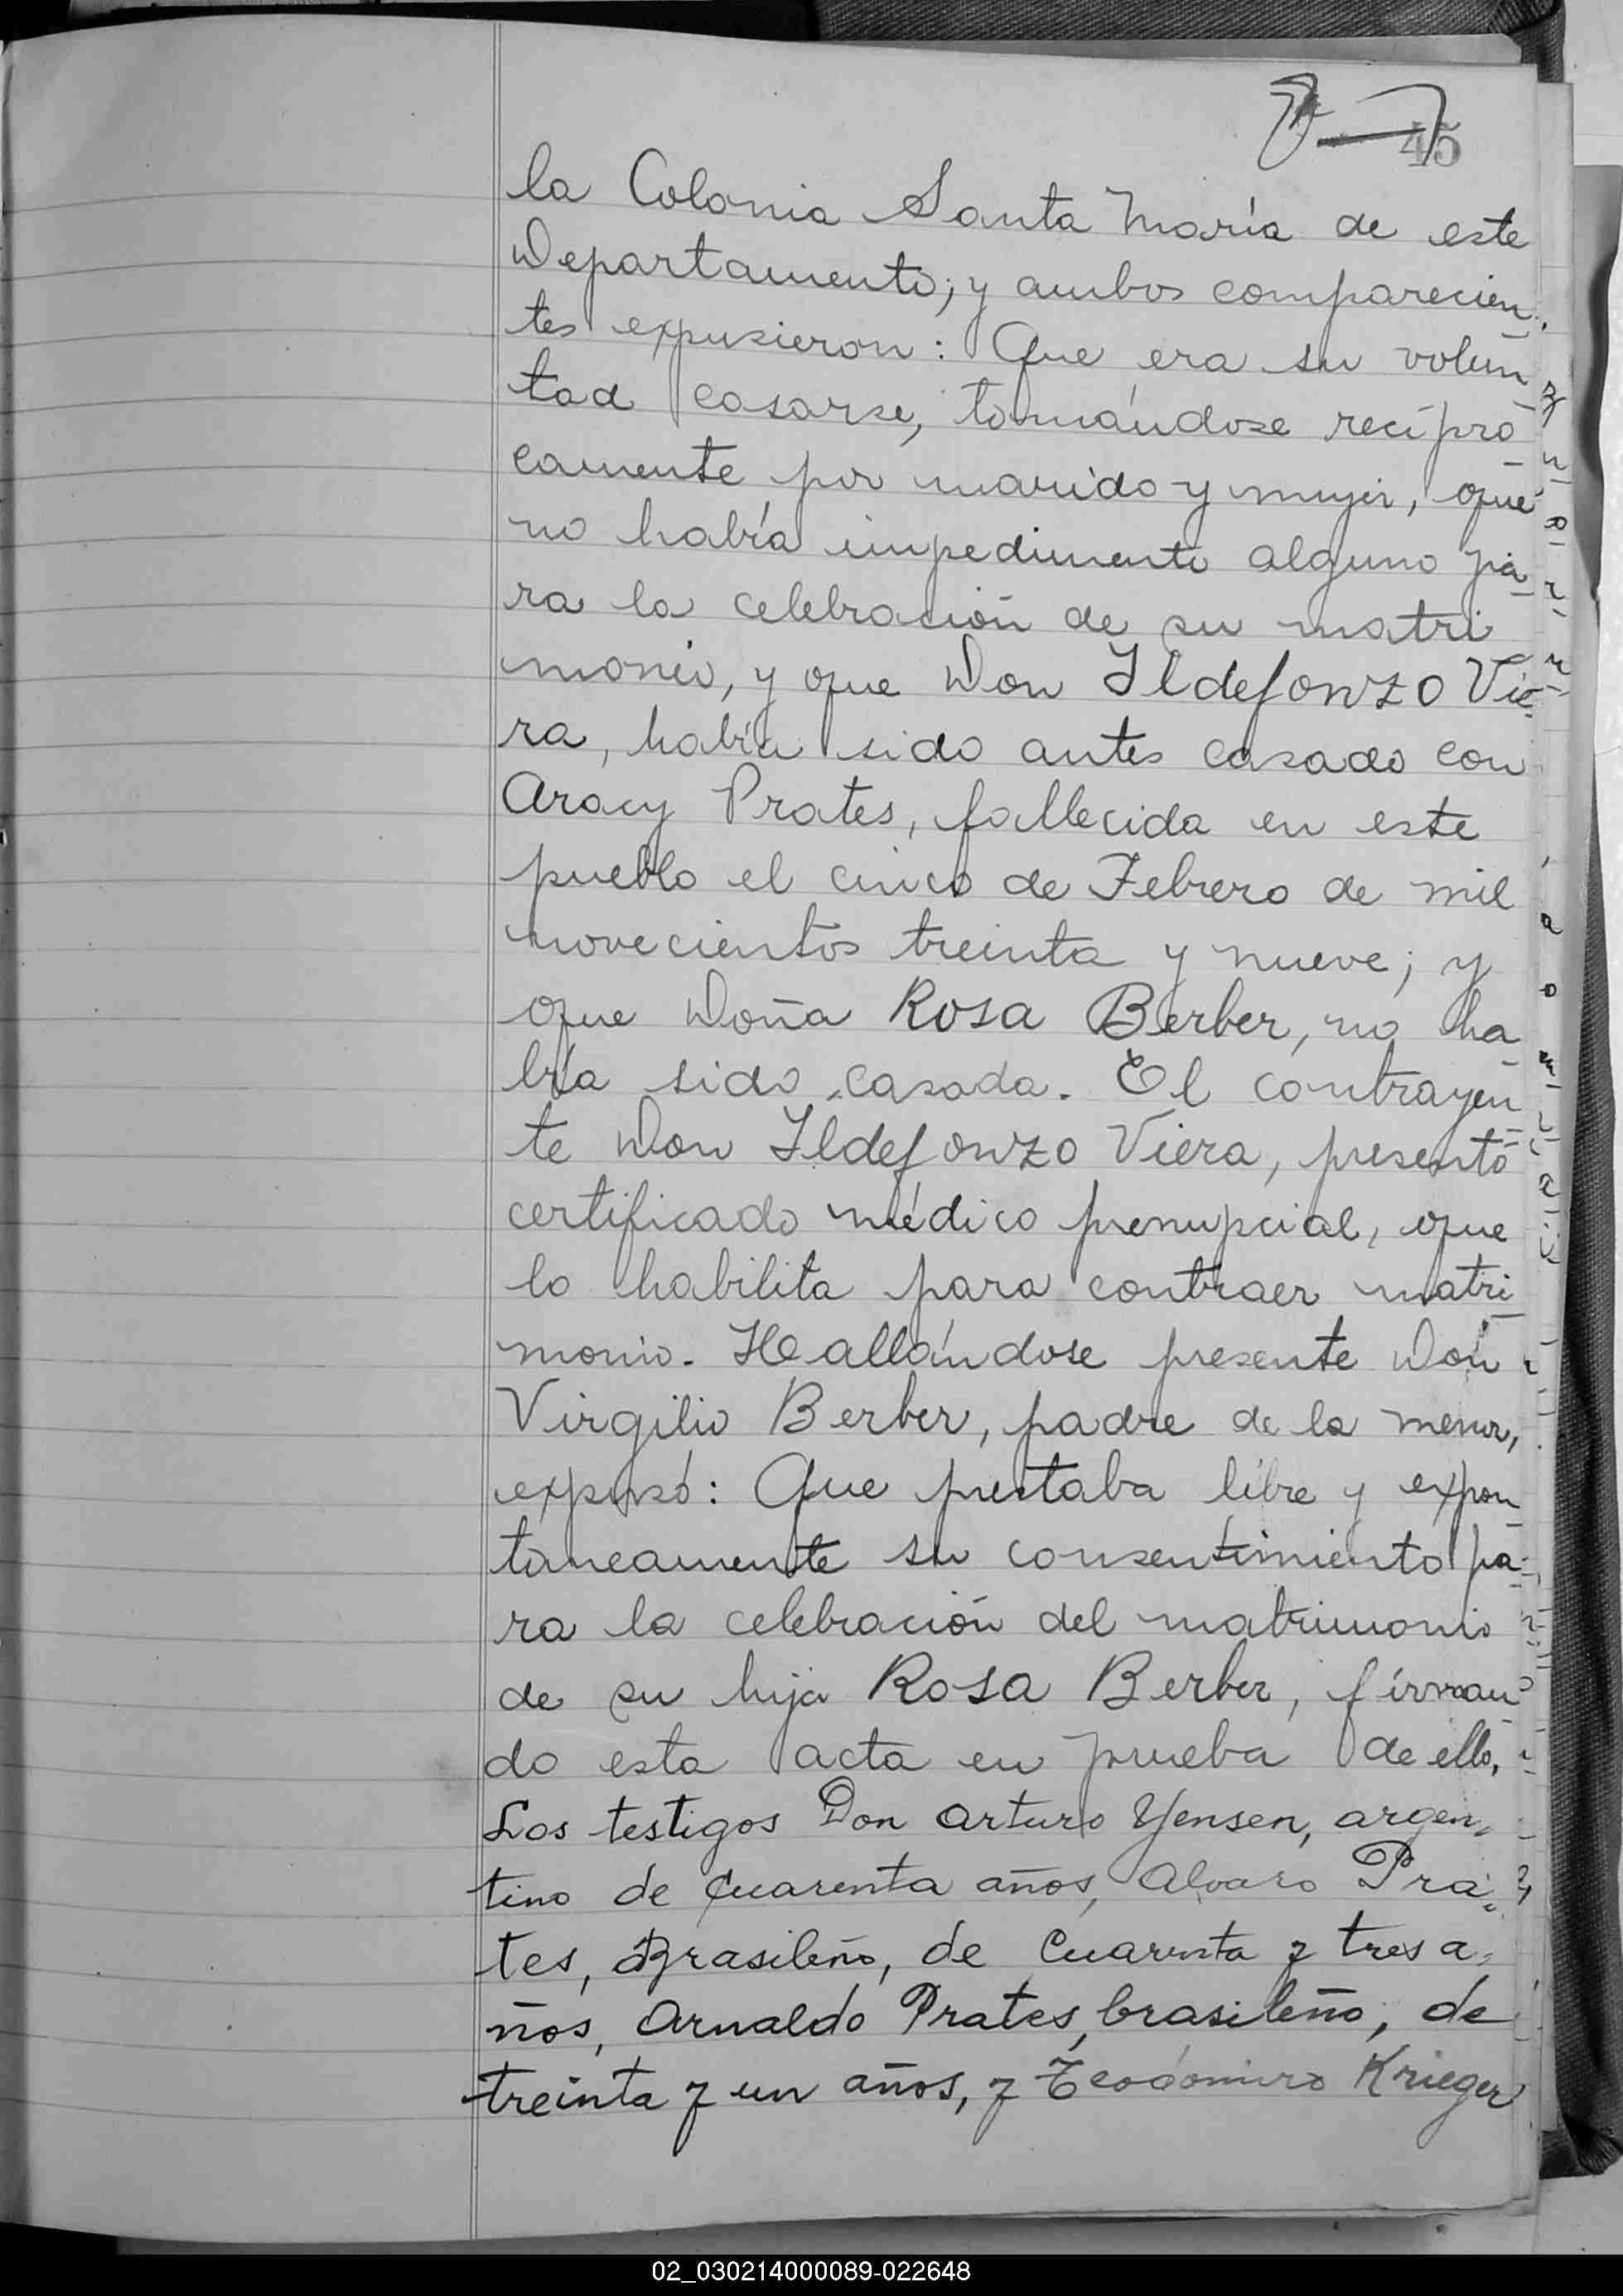 45
la Colonia Santa María de este
Departamento; y ambos comparecien
tes expusieron: Que era su volun
tad casarse, tomándose recípro
camente por marido y mujer, que
no había impedimento alguno pa
ra la celebración de su matri
monio, y que Don Ildefonzo Vie
ra, había sido antes casado con
Aracy Prates, fallecida en este
pueblo el cinco de Febrero de mil
novecientos treinta y nueve; y
que Doña Rosa Berber, no ha
bía sido casada. El contrayen
te Don Ildefonzo Viera, presentó
certificado médico prenupcial, que
lo habilita para contraer matri
monio. Hallándose presente Don
Virgilio Berber, padre de la menor,
expusó: Que prestaba libre y expon
taneamente su consentimiento pa
ra la celebración del matrimonio
de su hija Rosa Berber, firman
do esta acta en prueba de ello,
Los testigos Don Arturo Yensen, argen
tino de cuarenta años, Alvaro Pra
tes, Brasileño, de cuarenta y tres a
ños, Arnaldo Prates, brasileño, de
treinta y un años, y Teodomiro Krieger
02_030214000089-022648